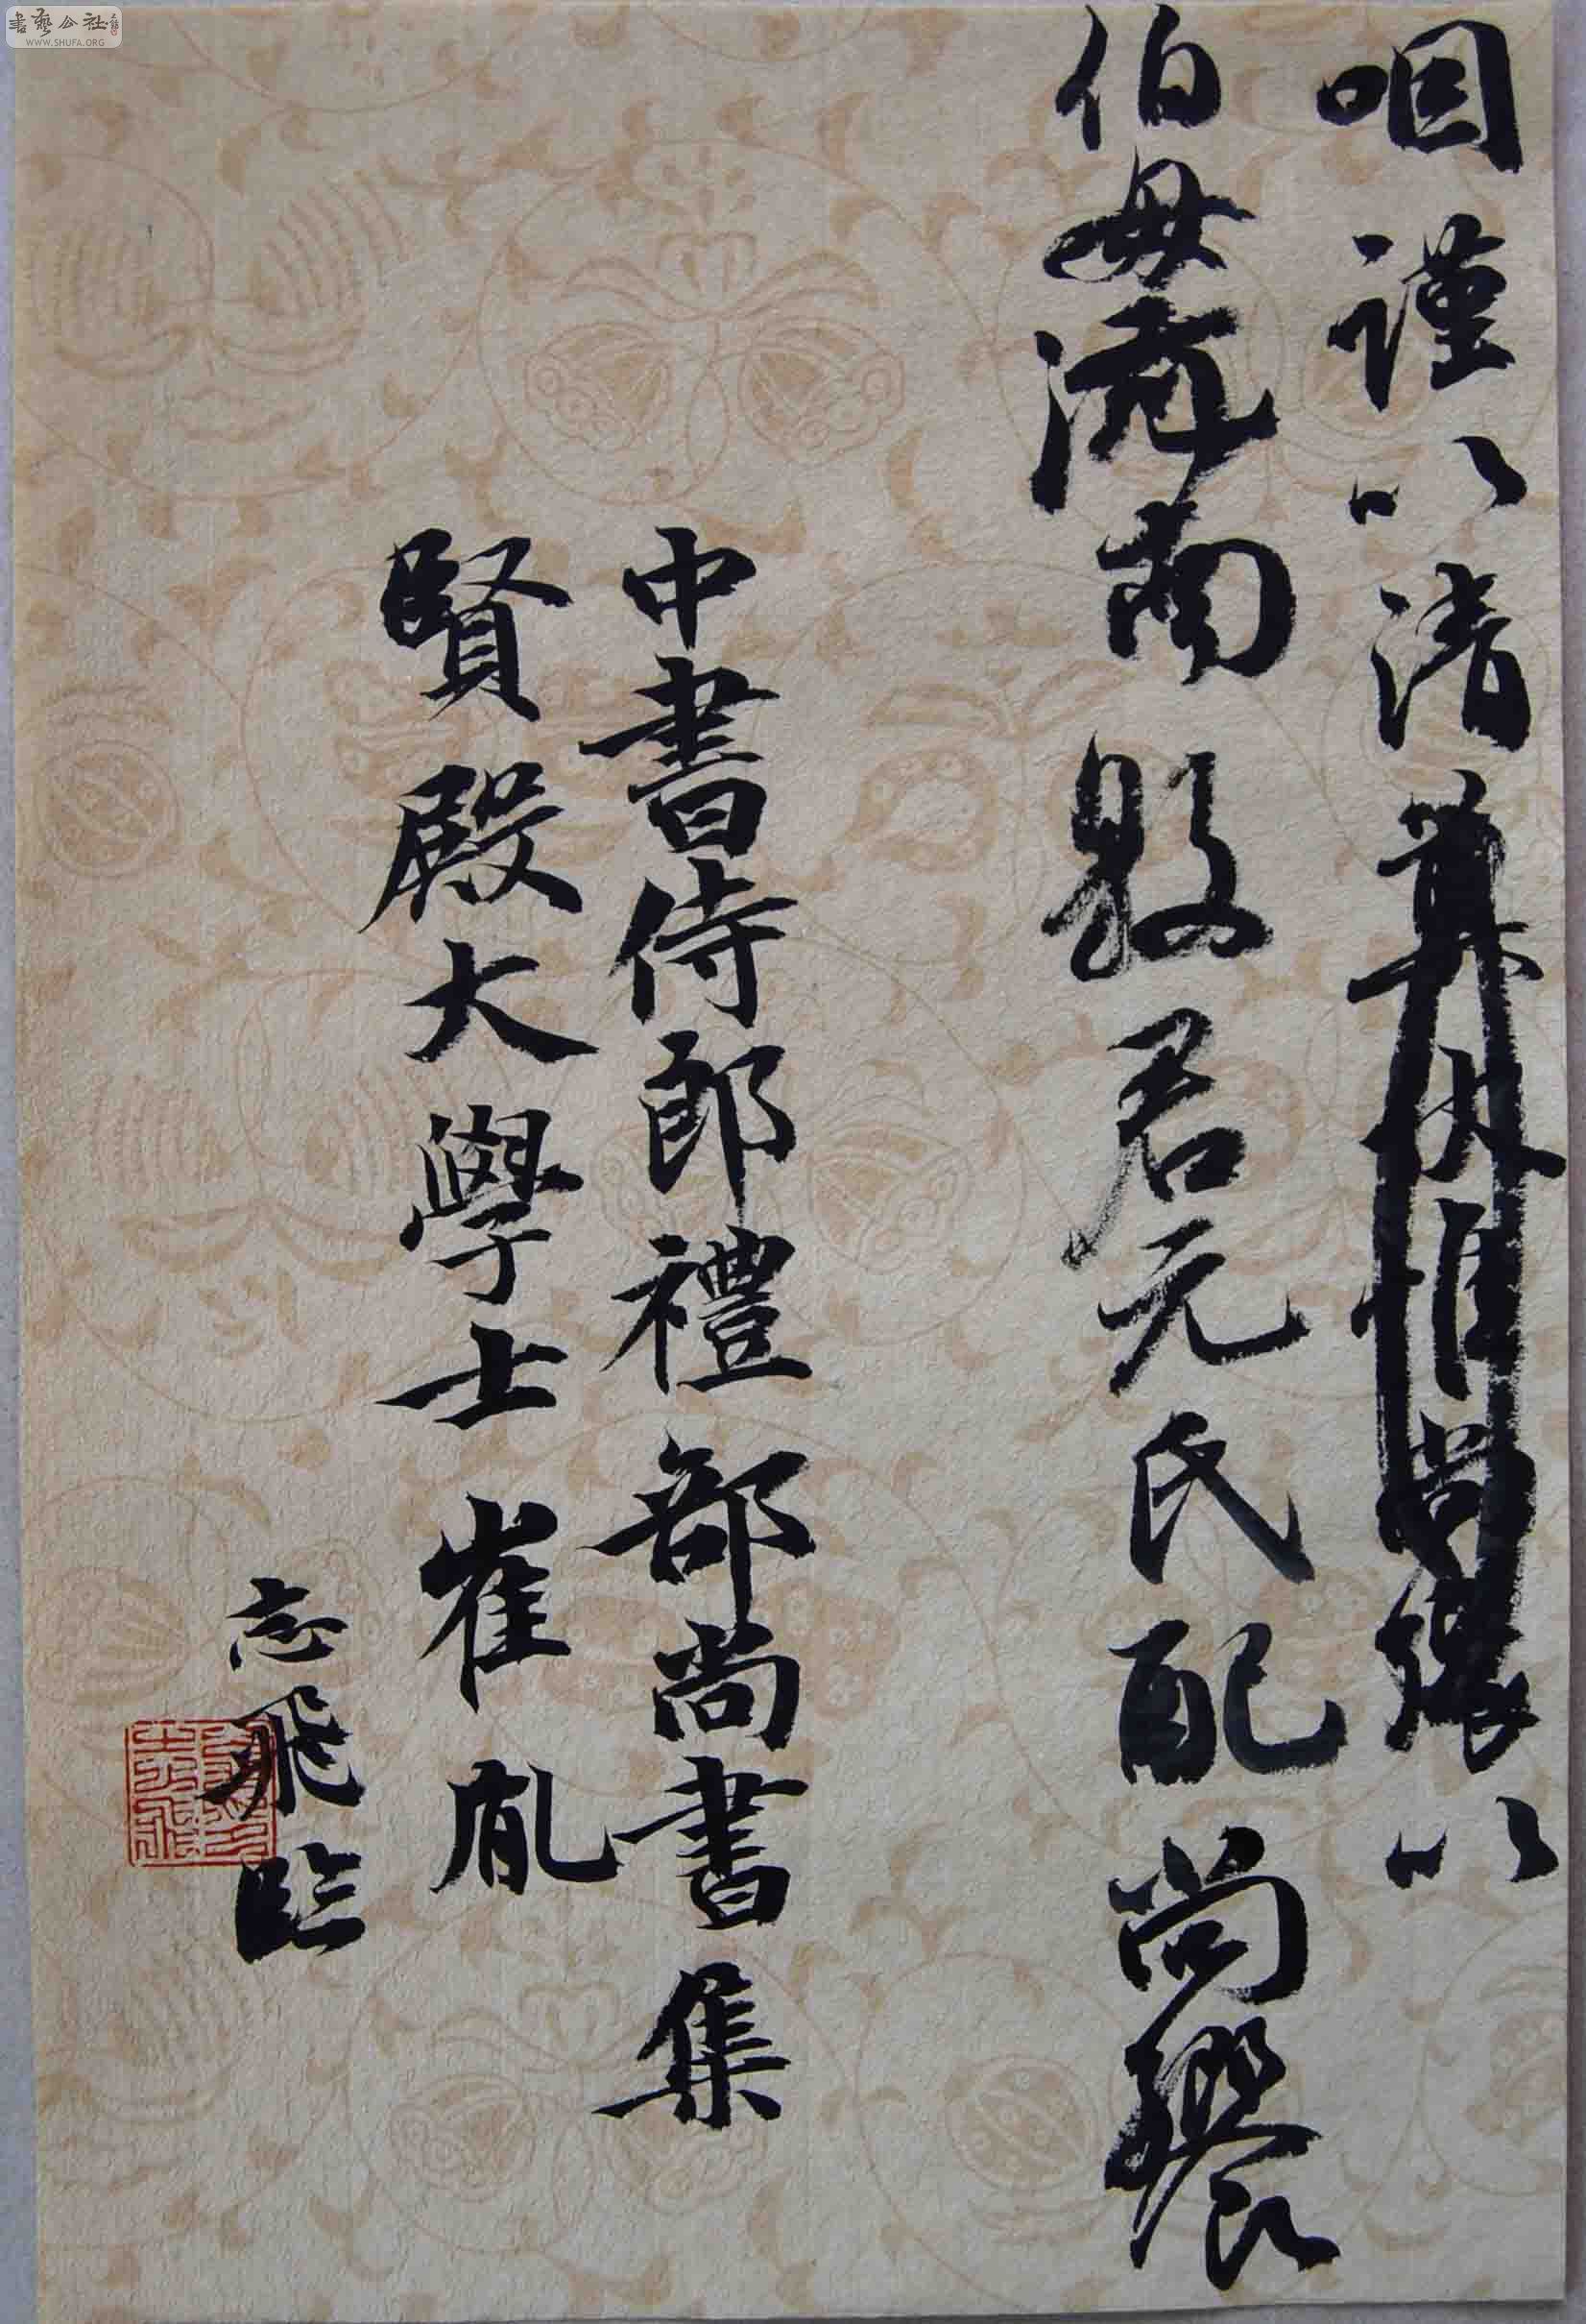 書藝公社
WWW.SHUFA.ORG
咽謹以清伏惟尚饗以
伯母河南縣君元氏配尚饗
中書侍郎禮部尚書集
賢殿大學士崔胤
志飛臨